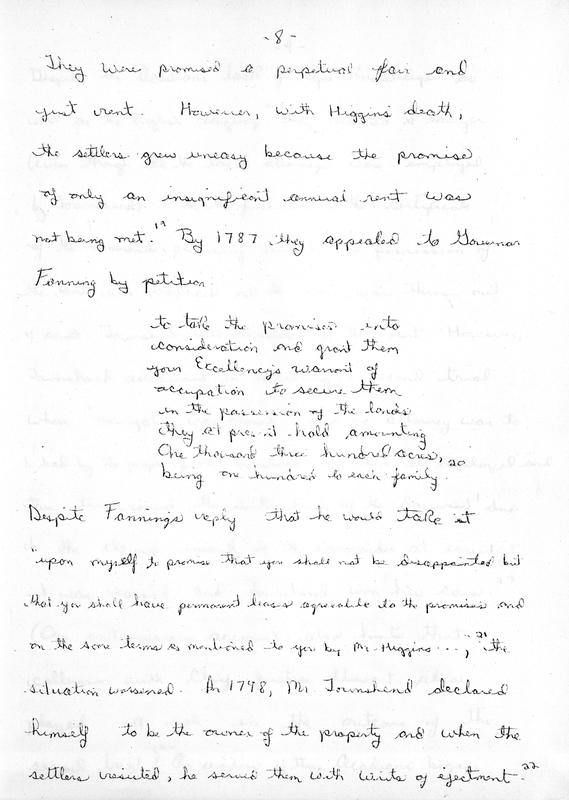 -8-
They were promised a perpetual fair and
just rent. However, with Higgins' death,
the settlers grew uneasy because the promise
of only an insignificant annual rent was
not being met.19 By 1787 they appealed to Governor
Fanning by petition
to take the promises into
consideration and grant them
your Excellency's warrant of
occupation to secure them
in the possession of the lands
they at present hold amounting
One thousand three hundred acres,
being one hundred to each family.20
Despite Fanning's reply that he would take it
"upon myself to promise that you shall not be disappointed but
that you shall have permanent leases agreeable to the promises and
on the same terms as mentioned to you by Mr. Higgins...,"21 the
situation worsened. In 1798, Mr. Townshend declared
himself to be the owner of the property and when the
settlers resisted, he served them with writs of ejectment.22